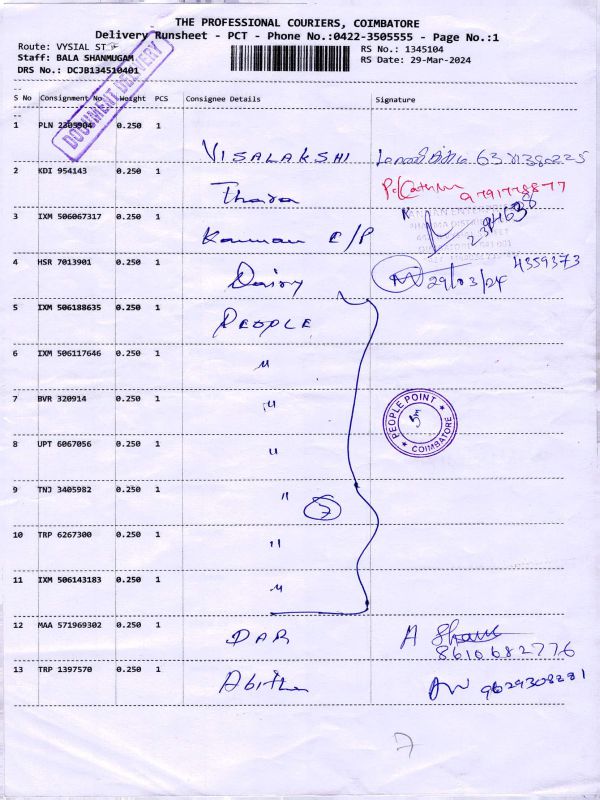 THE PROFESSIONAL COURIERS, COIMBATORE
Delivery Runsheet - PCT - Phone No.:0422-3505555 - Page No.:1
Route: VYSIAL ST
RS No.: 1345104
Staff: BALA SHANMUGAM
RS Date: 29-Mar-2024
DRS No.: DCJB134510401
DOCUMENT DELIVERY
S No Consignment No Weight PCS Consignee Details Signature
1 PLN 0.250 1 VISALAKSHI
2 KDI 954143 0.250 1 Thara 9791778877
3 IXM 506067317 0.250 1 Kannan E/P 2394638
4 HSR 7013901 0.250 1 Daisy 29/03/24 4359373
5 IXM 506188635 0.250 1 PEOPLE
6 IXM 506117646 0.250 1 "
7 BVR 320914 0.250 1 "
PEOPLE POINT COIMBATORE
8 UPT 6067056 0.250 1 "
9 TNJ 3405982 0.250 1 " 7
10 TRP 6267300 0.250 1 "
11 IXM 506143183 0.250 1 "
12 MAA 571969302 0.250 1 DAR A
8610682776
13 TRP 1397570 0.250 1 Abitha 9629308281
7